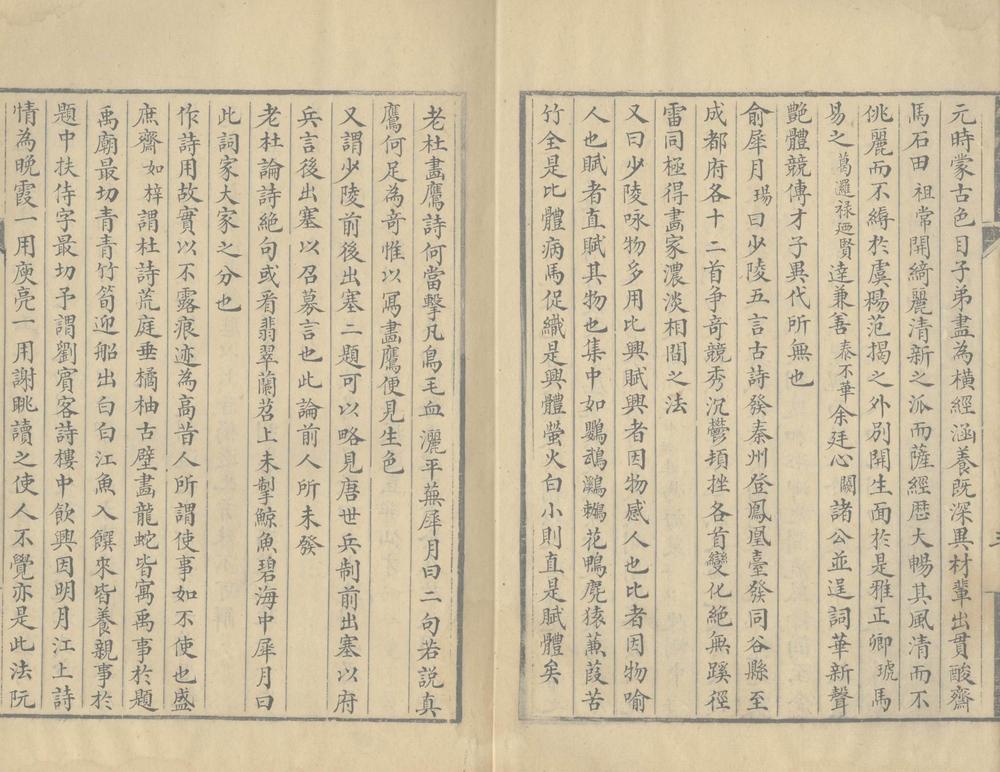 元時蒙古色目子弟盡為橫經涵養既深異材輩出貫酸齋
馬石田祖常開綺麗清新之派而薩經歷大暢其風清而不
佻麗而不縟於虞楊范揭之外別開生面於是雅正卿琥馬
易之葛邏祿廼賢達兼善泰不華余廷心闕諸公並逞詞華新聲
艷體競傳才子異代所無也
俞犀月瑒曰少陵五言古詩發秦州登鳳凰臺發同谷縣至
成都府各十二首爭奇競秀沉鬱頓挫各首變化絕無蹊徑
雷同極得畫家濃淡相間之法
又曰少陵咏物多用比興賦興者因物感人也比者因物喻
人也賦者直賦其物也集中如鸚鵡鸂鶒花鴨麂猿蒹葭苦
竹全是比體病馬促織是興體螢火白小則直是賦體矣
老杜畫鷹詩何當擊凡鳥毛血灑平蕪犀月曰二句若說真
鷹何足為奇惟以寫畫鷹便見生色
又謂少陵前後出塞二題可以略見唐世兵制前出塞以府
兵言後出塞以召募言也此論前人所未發
老杜論詩絕句或看翡翠蘭苕上未掣鯨魚碧海中犀月曰
此詞家大家之分也
作詩用故實以不露痕迹為高昔人所謂使事如不使也盛
庶齋如梓謂杜詩荒庭垂橘柚古壁畫龍蛇皆寓禹事於題
禹廟最切青青竹筍迎船出白白江魚入饌來皆養親事於
題中扶侍字最切予謂劉賓客詩樓中飲興因明月江上詩
情為晚霞一用庾亮一用謝眺讀之使人不覺亦是此法阮